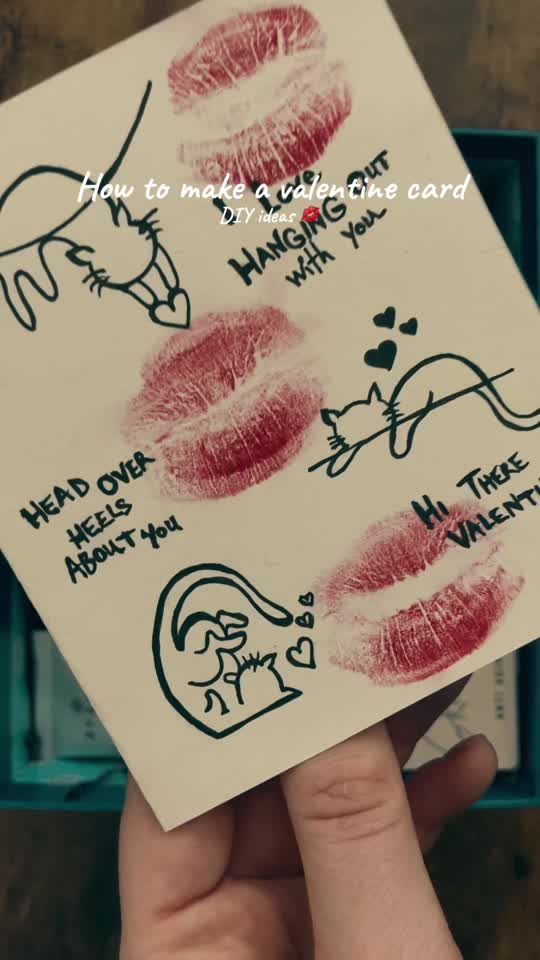 How to make a valentine card
DIY ideas 💋
HANGING OUT
with you
HEAD OVER
HEELS
ABOUT YOU
HI THERE